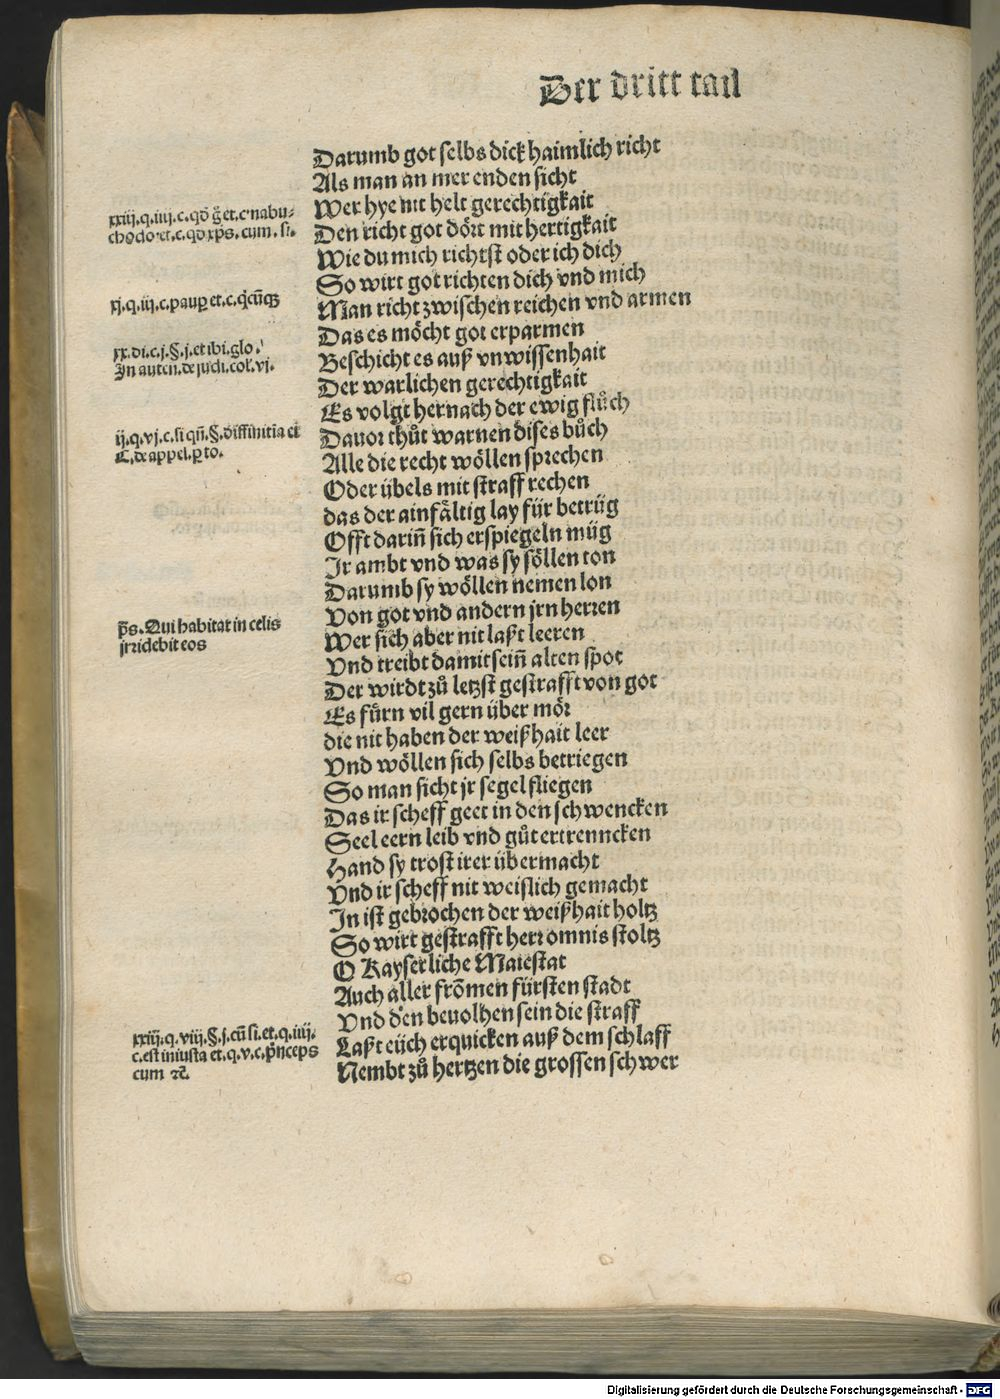 Der dritt tail
Darumb got selbs dick haimlich richt
Als man an mer enden sicht
Wer hye nit helt gerechtigkait
Den richt got dört mit hertigkait
Wie du mich richtst oder ich dich
So wirt got richten dich vnd mich
Man richt zwischen reichen vnd armen
Das es möcht got erparmen
Beschicht es auß vnwissenhait
Der warlichen gerechtigkait
Es volgt hernach der ewig flůch
Dauor thůt warnen dises bůch
Alle die recht wöllen sprechen
Oder übels mit straff rechen
das der ainfältig lay für betrüg
Offt darin̄ sich erspiegeln müg
Ir ambt vnd was sy söllen ton
Darumb sy wöllen nemen lon
Von got vnd andern jrn herren
Wer sich aber nit laßt leeren
Vnd treibt damit sein̄ alten spot
Der wirdt zů letzst gestrafft von got
Es fůrn vil gern über mör
die nit haben der weißhait leer
Vnd wöllen sich selbs betriegen
So man sicht jr segel fliegen
Das ir scheff geet in den schwencken
Seel eern leib vnd gůt ertrenncken
Hand sy trost irer übermacht
Vnd ir scheff nit weislich gemacht
In ist gebrochen der weißhait holtz
So wirt gestrafft herr omnis stoltz
O Kayserliche Maiestat
Auch aller frōmen fürsten stadt
Vnd den beuolhen sein die straff
Laßt eüch erquicken auß dem schlaff
Nembt zů hertzen die grossen schwer
xxiij.q.iiij.c.qđ g̃ et.c.nabu-
chodo.et.c.qđ xp̄s.cum.si.
xj.q.iij.c.paup et.c.
xx.di.c.j.§.j.et ibi.glo.
In auten.de judi.col.vj.
ij.q.vj.c.si qn̄.§.diffinitia et
C.de appel.
p̄s. Qui habitat in celis
jrridebit eos
xxiij.q.viij.§.j.cū si.et.q.iiij.
c.est iniusta et.q.v.c.p̄nceps
cum ⁊c̄.
Digitalisierung gefördert durch die Deutsche Forschungsgemeinschaft - DFG